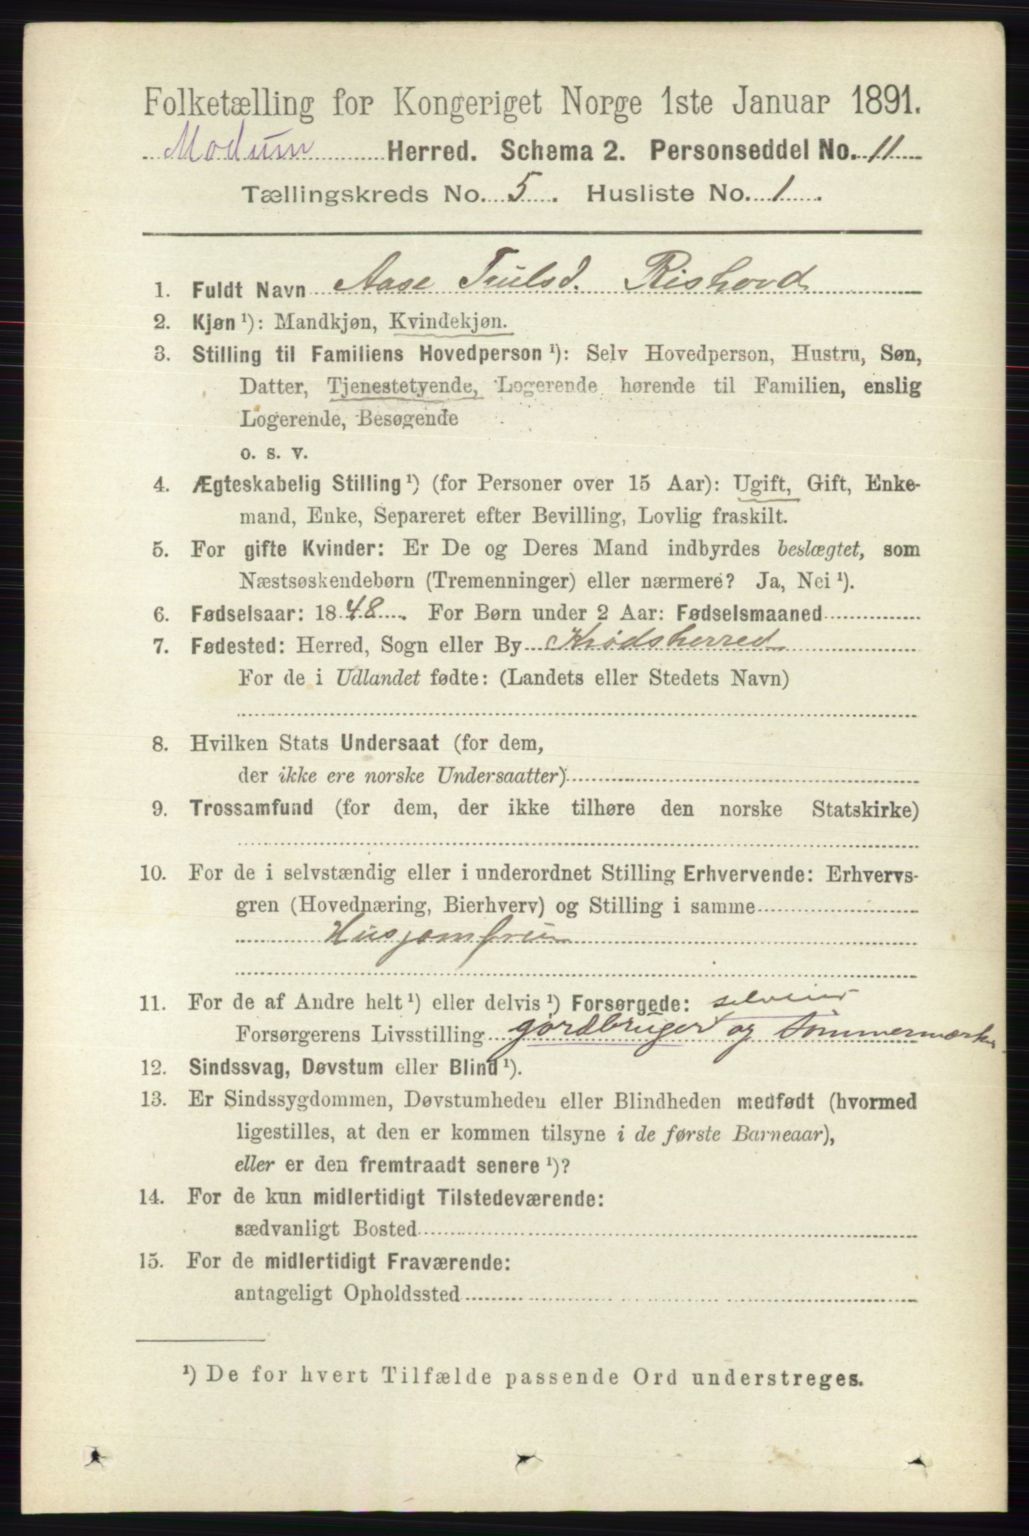 Folketælling for Kongeriget Norge 1ste Januar 1891.
Modum Herred. Schema 2. Personseddel No. 11
Tællingskreds No. 5. Husliste No. 1.
1. Fuldt Navn Aase Trulsd. Rishovd
2. Kjøn ¹): Mandkjøn, Kvindekjøn.
3. Stilling til Familiens Hovedperson ¹): Selv Hovedperson, Hustru, Søn,
Datter, Tjenestetyende, Logerende hørende til Familien, enslig
Logerende, Besøgende
o. s. v.
4. Ægteskabelig Stilling ¹) (for Personer over 15 Aar): Ugift, Gift, Enke-
mand, Enke, Separeret efter Bevilling, Lovlig fraskilt.
5. For gifte Kvinder: Er De og Deres Mand indbyrdes beslægtet, som
Næstsøskendebørn (Tremenninger) eller nærmere? Ja, Nei ¹).
6. Fødselsaar: 1848. For Børn under 2 Aar: Fødselsmaaned
7. Fødested: Herred, Sogn eller By Krødsherred
For de i Udlandet fødte: (Landets eller Stedets Navn)
8. Hvilken Stats Undersaat (for dem,
der ikke ere norske Undersaatter)
9. Trossamfund (for dem, der ikke tilhøre den norske Statskirke)
10. For de i selvstændig eller i underordnet Stilling Erhvervende: Erhvervs-
gren (Hovednæring, Bierhverv) og Stilling i samme
Husjomfru
11. For de af Andre helt ¹) eller delvis ¹) Forsørgede: selveier
Forsørgerens Livsstilling gårdbruger og tømmermærker
12. Sindssvag, Døvstum eller Blind ¹).
13. Er Sindssygdommen, Døvstumheden eller Blindheden medfødt (hvormed
ligestilles, at den er kommen tilsyne i de første Barneaar),
eller er den fremtraadt senere ¹)?
14. For de kun midlertidigt Tilstedeværende:
sædvanligt Bosted
15. For de midlertidigt Fraværende:
antageligt Opholdssted
¹) De for hvert Tilfælde passende Ord understreges.